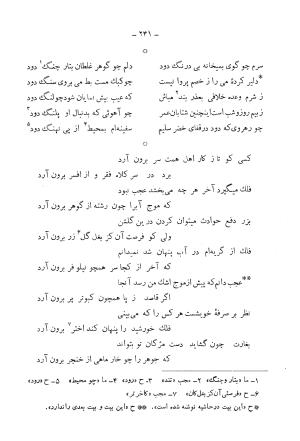 - ۲۴۱ -
سرم چو گوی بمیخانه بی درنگ دود
دلم چو گوهر غلطان بتار چنگ۱ دود
*دلیر کرده می را ز خصم پروا نیست
چو کبک مست بط می بروی سنگ دود
ز شرم وعده خلافی بعذر بند۲ مباش
که عیب بیش نمایان شود چو لنگ دود
ز بیم روز وشب است اینچنین شتابان عمر
چو آهوئی که بدنبال او پلنگ دود
چو رهروی که دود در قفای خضر سلیم
سفینه‌ام بمحیط۴ از پی نهنگ دود۵
کسی کو تا ز کار اهل همت سر برون آرد
برد در سر کلاه فقر و از افسر برون آرد
فلک میگیرد آخر هر چه می‌بخشد عجب نبود
که موج آبرا چون رشته از گوهر برون آرد
بزر دفع حوادث میتوان کردن در این گلشن
ولی کو فرصت آن کز بغل گل۶ زر برون آرد
فلک از گریه‌ام در آب پنهان شد نمیدانم
که آخر از کجا سر همچو نیلوفر برون آرد
**عجب دانم که پیش از موج اشک من رسد آنجا
اگر قاصد ز پا همچون کبوتر پر برون آرد
نظر بر صرفهٔ خویشست هر کس را که می‌بینی
فلک خورشید را پنهان کند اختر۷ برون آرد
بغارت چون گشاید دست مژگان تو بتواند
که جوهر را چو خار ماهی از خنجر برون آرد
۱- ما «بتار و چنگ» ۲- مجب «تند» ۳- ح «رود» ۴- ما «چو محیط» ۵- ح «رود»
۶- ح «فرصتی آن کز بغل کان» ۷- مجب «کاختر»
* ح «این بیت در حاشیه نوشته شده است. ** ح «این بیت و بیت بعدی را ندارد».